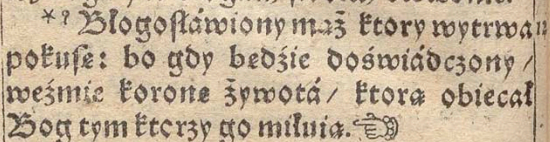 *⁹ Błogosłáwiony mąż ktory wytrwa
pokusę: bo gdy będźie doświádczony /
weźmie koronę żywotá / ktorą obiecał
Bog tym ktorzy go miłuią. ☜